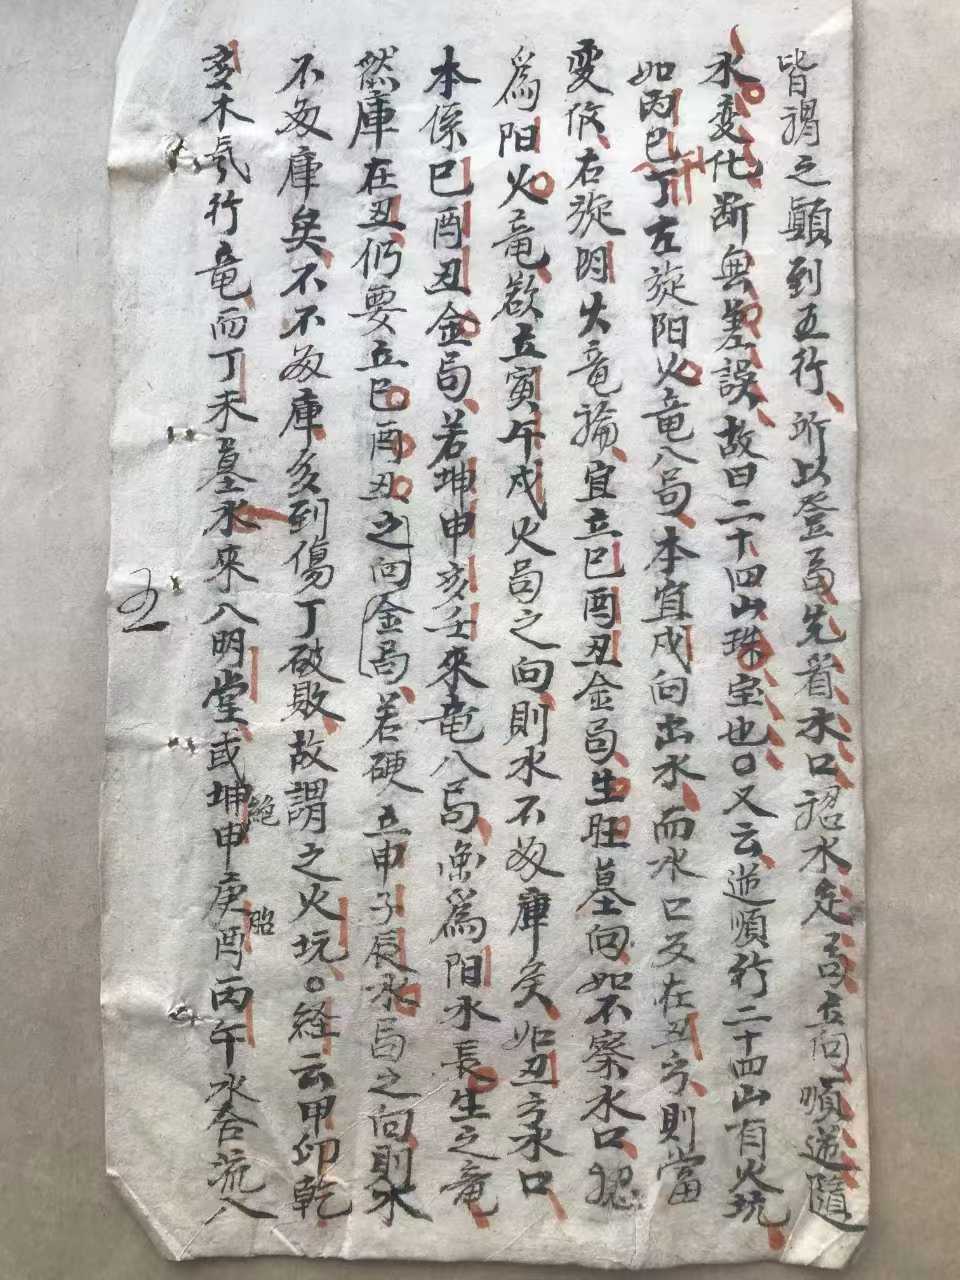 皆謂之顛到五行、所以登局先看水口、認水走否立向、順逆隨
水変化、断無差誤、故曰二十四山珠宝也○又云、逆順行二十四山有火坑
如丙巳丁午左旋阳火竜入局、本宜戌向出水、而水口反在丑方、則當
変作右旋明火竜論、宜立巳酉丑金局、生旺墓向、如不察水口、認
為阳火竜、欲立寅午戌火局之向、則水不敀庫矣、如丑方水口
本係巳酉丑金局、若坤申亥壬來竜入局、带為阳水長生之竜
然庫在丑、仍要立巳酉丑之向金局、若硬立申子辰水局之向則水
不敀庫矣、不不敀庫、多到傷丁破敗、故謂之火坑。○経云甲卯乾
亥木氣行竜、而丁未墓水來入明堂、或坤申庚酉丙午水合流入
絶
胎
五